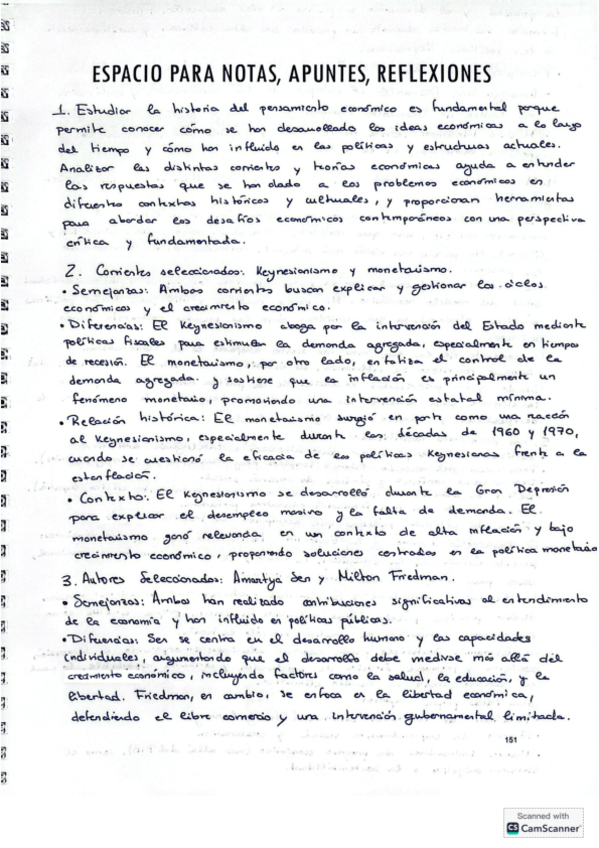 ESPACIO PARA NOTAS, APUNTES, REFLEXIONES
1. Estudiar la historia del pensamiento económico es fundamental porque
permite conocer cómo se han desarrollado las ideas económicas a lo largo
del tiempo y cómo han influido en las políticas y estructuras actuales.
Analizar las distintas corrientes y teorías económicas ayuda a entender
las respuestas que se han dado a los problemas económicos en
diferentes contextos históricos y culturales, y proporcionan herramientas
para abordar los desafíos económicos contemporáneos con una perspectiva
crítica y fundamentada.
2. Corrientes seleccionadas: Keynesianismo y monetarismo.
• Semejanzas: Ambas corrientes buscan explicar y gestionar los ciclos
económicos y el crecimiento económico.
• Diferencias: El Keynesianismo aboga por la intervención del Estado mediante
políticas fiscales para estimular la demanda agregada, especialmente en tiempos
de recesión. El monetarismo, por otro lado, enfatiza el control de la
demanda agregada y sostiene que la inflación es principalmente un
fenómeno monetario, promoviendo una intervención estatal mínima.
• Relación histórica: El monetarismo surgió en parte como una reacción
al Keynesianismo, especialmente durante las décadas de 1960 y 1970,
cuando se cuestionó la eficacia de las políticas Keynesianas frente a la
estanflación.
• Contexto: El Keynesianismo se desarrolló durante la Gran Depresión
para explicar el desempleo masivo y la falta de demanda. El
monetarismo ganó relevancia en un contexto de alta inflación y bajo
crecimiento económico, proponiendo soluciones centradas en la política monetaria
3. Autores Seleccionados: Amartya Sen y Milton Friedman.
• Semejanzas: Ambos han realizado contribuciones significativas al entendimiento
de la economía y han influido en políticas públicas.
• Diferencias: Sen se centra en el desarrollo humano y las capacidades
individuales, argumentando que el desarrollo debe medirse más allá del
crecimiento económico, incluyendo factores como la salud, la educación, y la
libertad. Friedman, en cambio, se enfoca en la libertad económica,
defendiendo el libre comercio y una intervención gubernamental limitada.
151
Scanned with
CS CamScanner